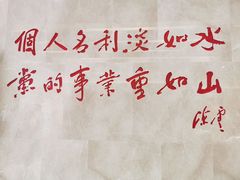 個人名利淡如水
黨的事業重如山
陳雲